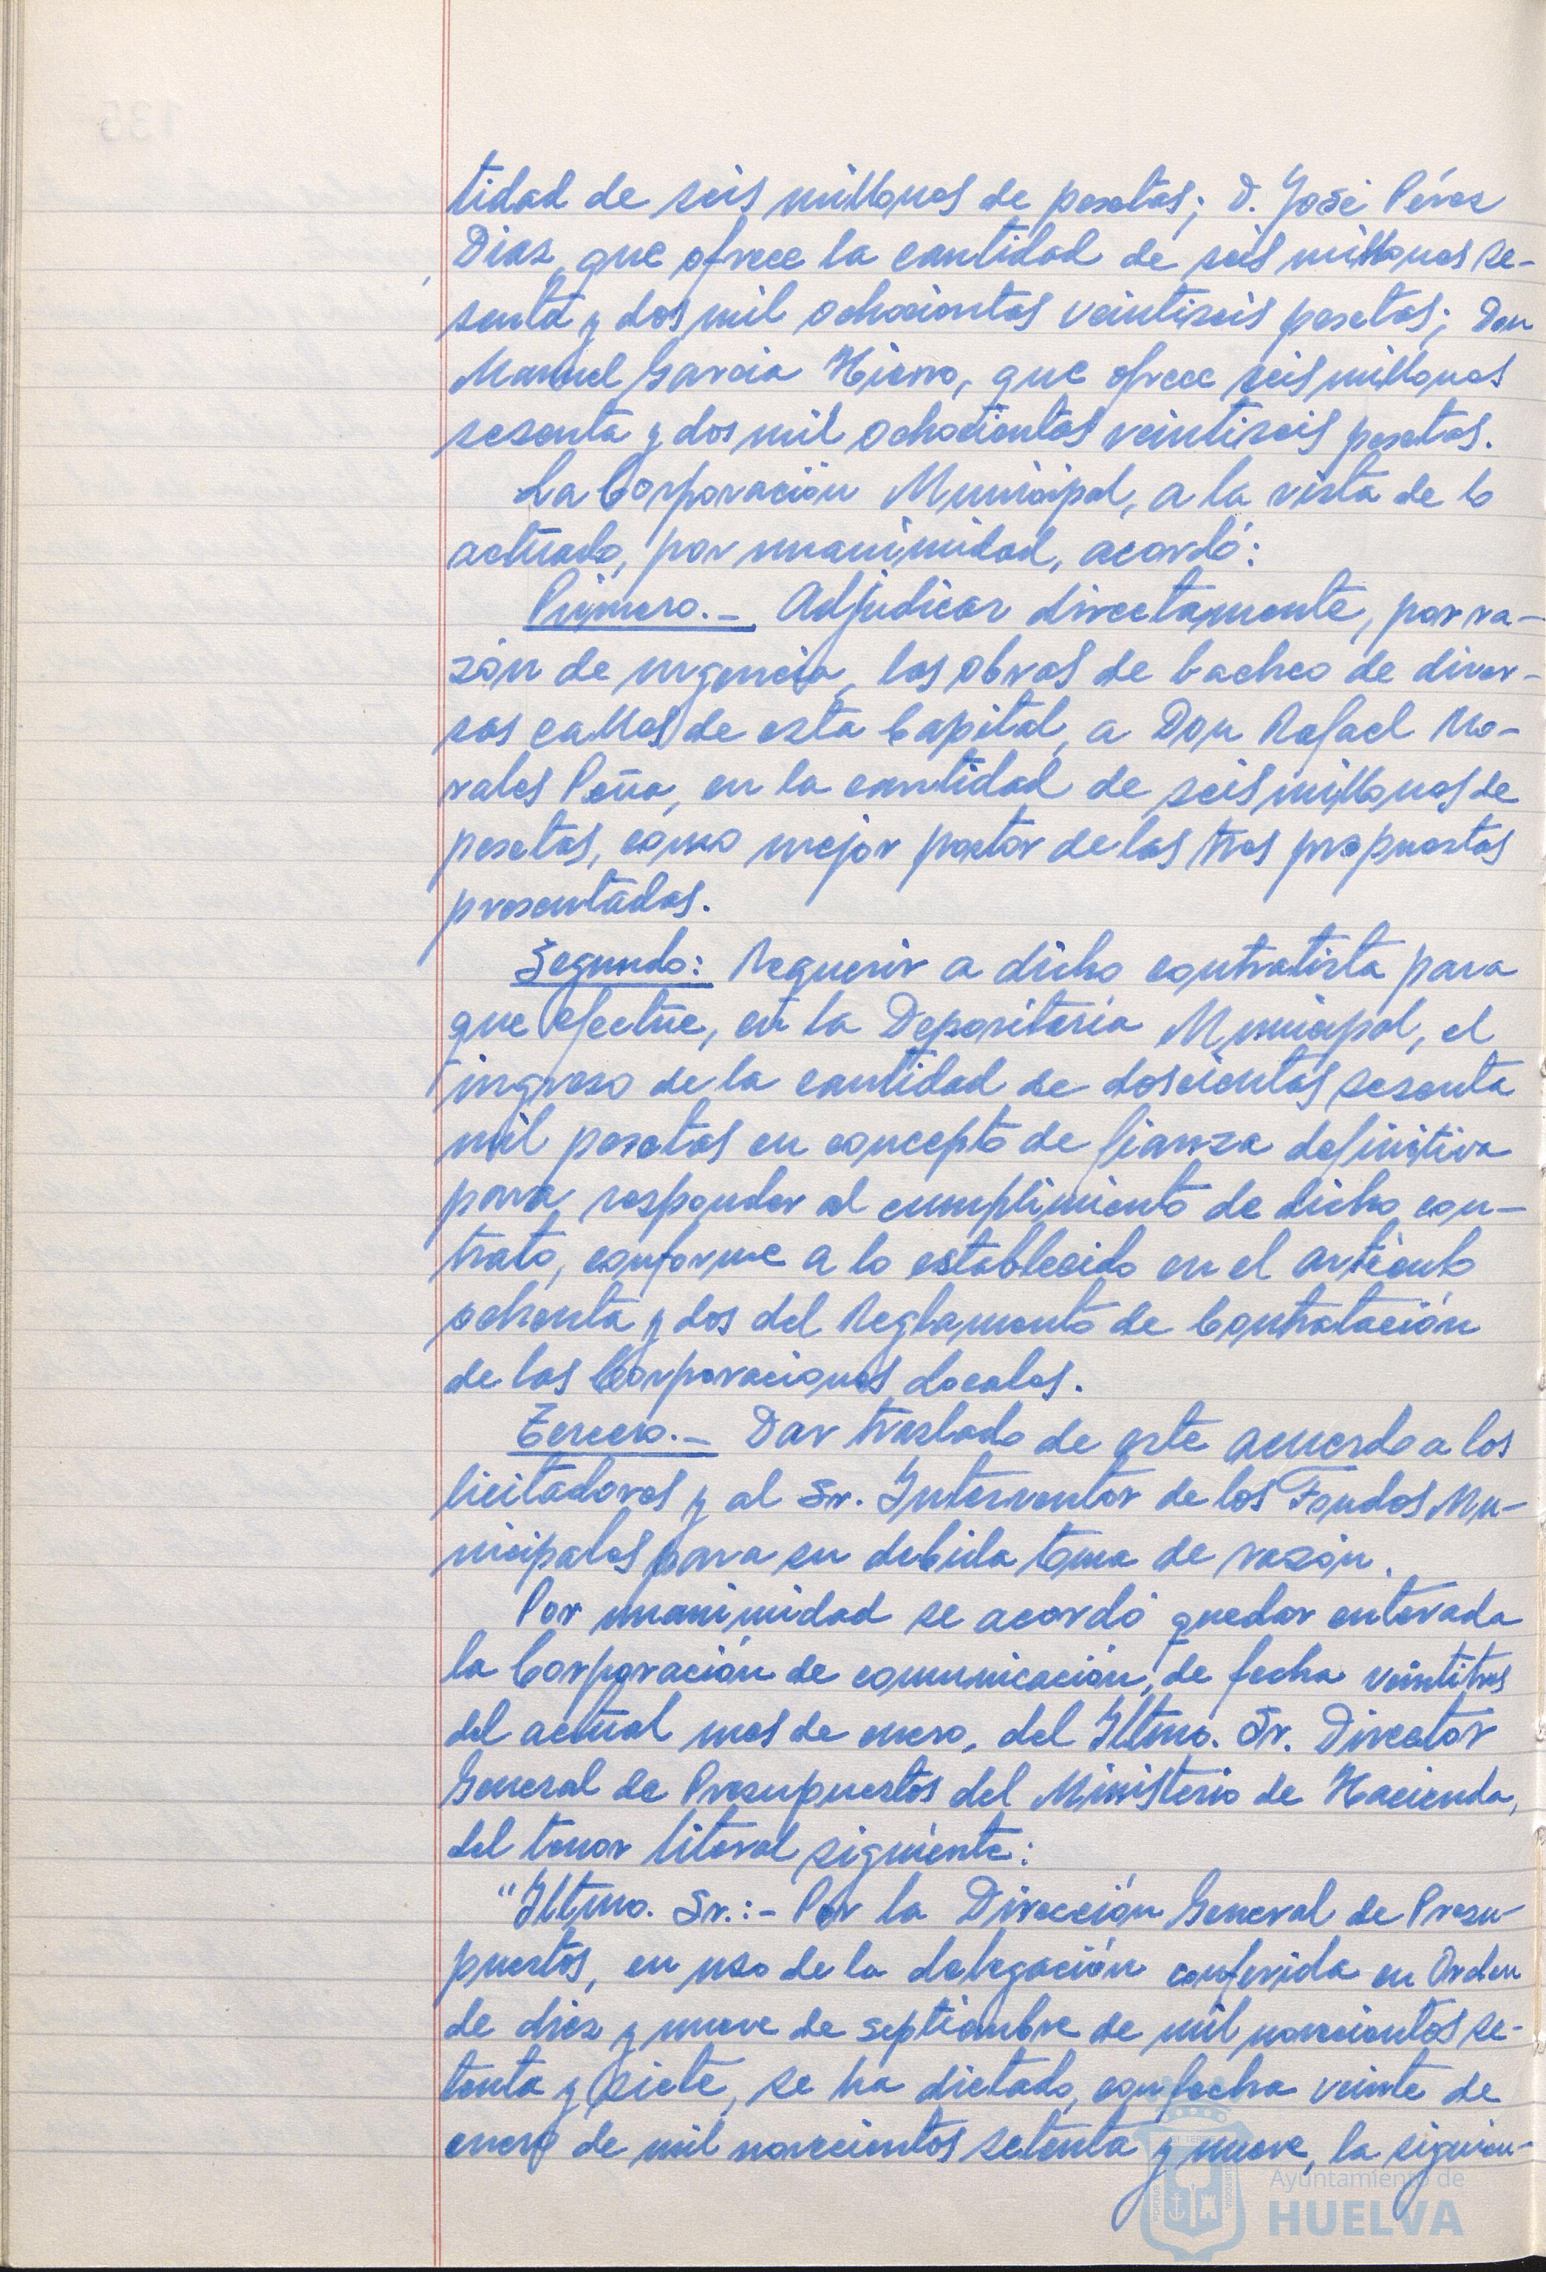 tidad de seis millones de pesetas; D. José Pérez
Diaz, que ofrece la cantidad de seis millones se-
senta y dos mil ochocientas veintiseis pesetas; Don
Manuel Garcia Hierro, que ofrece seis millones
sesenta y dos mil ochocientas veintiseis pesetas.
La Corporación Municipal, a la vista de lo
actuado, por unanimidad, acordó:
Primero.- Adjudicar directamente, por ra-
zón de urgencia, las obras de bacheo de diver-
sas calles de esta Capital, a Don Rafael Mo-
rales Peña, en la cantidad de seis millones de
pesetas, como mejor postor de las tres propuestas
presentadas.
Segundo: Requerir a dicho contratista para
que efectúe, en la Depositaria Municipal, el
ingreso de la cantidad de doscientas sesenta
mil pesetas en concepto de fianza definitiva
para responder al cumplimiento de dicho con-
trato, conforme a lo establecido en el articulo
ochenta y dos del Reglamento de Contratación
de las Corporaciones Locales.
Tercero.- Dar traslado de este acuerdo a los
licitadores y al Sr. Interventor de los Fondos Mu-
nicipales para su debida toma de razón.
Por unanimidad se acordó quedar enterada
la Corporación de comunicación, de fecha veintitres
del actual mes de enero, del Iltmo. Sr. Director
General de Presupuestos del Ministerio de Hacienda,
del tenor literal siguiente:
"Iltmo. Sr.:- Por la Dirección General de Presu-
puestos, en uso de la delegación conferida en Orden
de diez y nueve de septiembre de mil novecientos se-
tenta y siete, se ha dictado, con fecha veinte de
enero de mil novecientos setenta y nueve, la siguien-
Ayuntamiento de
HUELVA